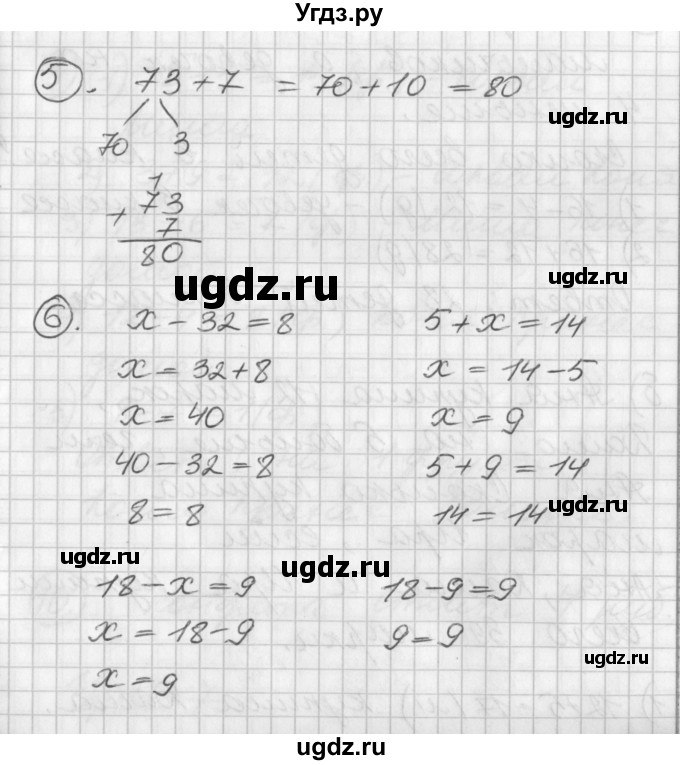 Угдз.ру
5. 73 + 7 = 70 + 10 = 80
ugdz.ru
70 3
1
+ 73
7
80
ugdz.ru
ugdz.ru
6. x - 32 = 8 5 + x = 14
x = 32 + 8 x = 14 - 5
x = 40 x = 9
40 - 32 = 8 5 + 9 = 14
8 = 8 14 = 14
ugdz.ru
ugdz.ru
ugdz.ru
18 - x = 9 18 - 9 = 9
x = 18 - 9 9 = 9
ugdz.ru
x = 9
ugdz.ru